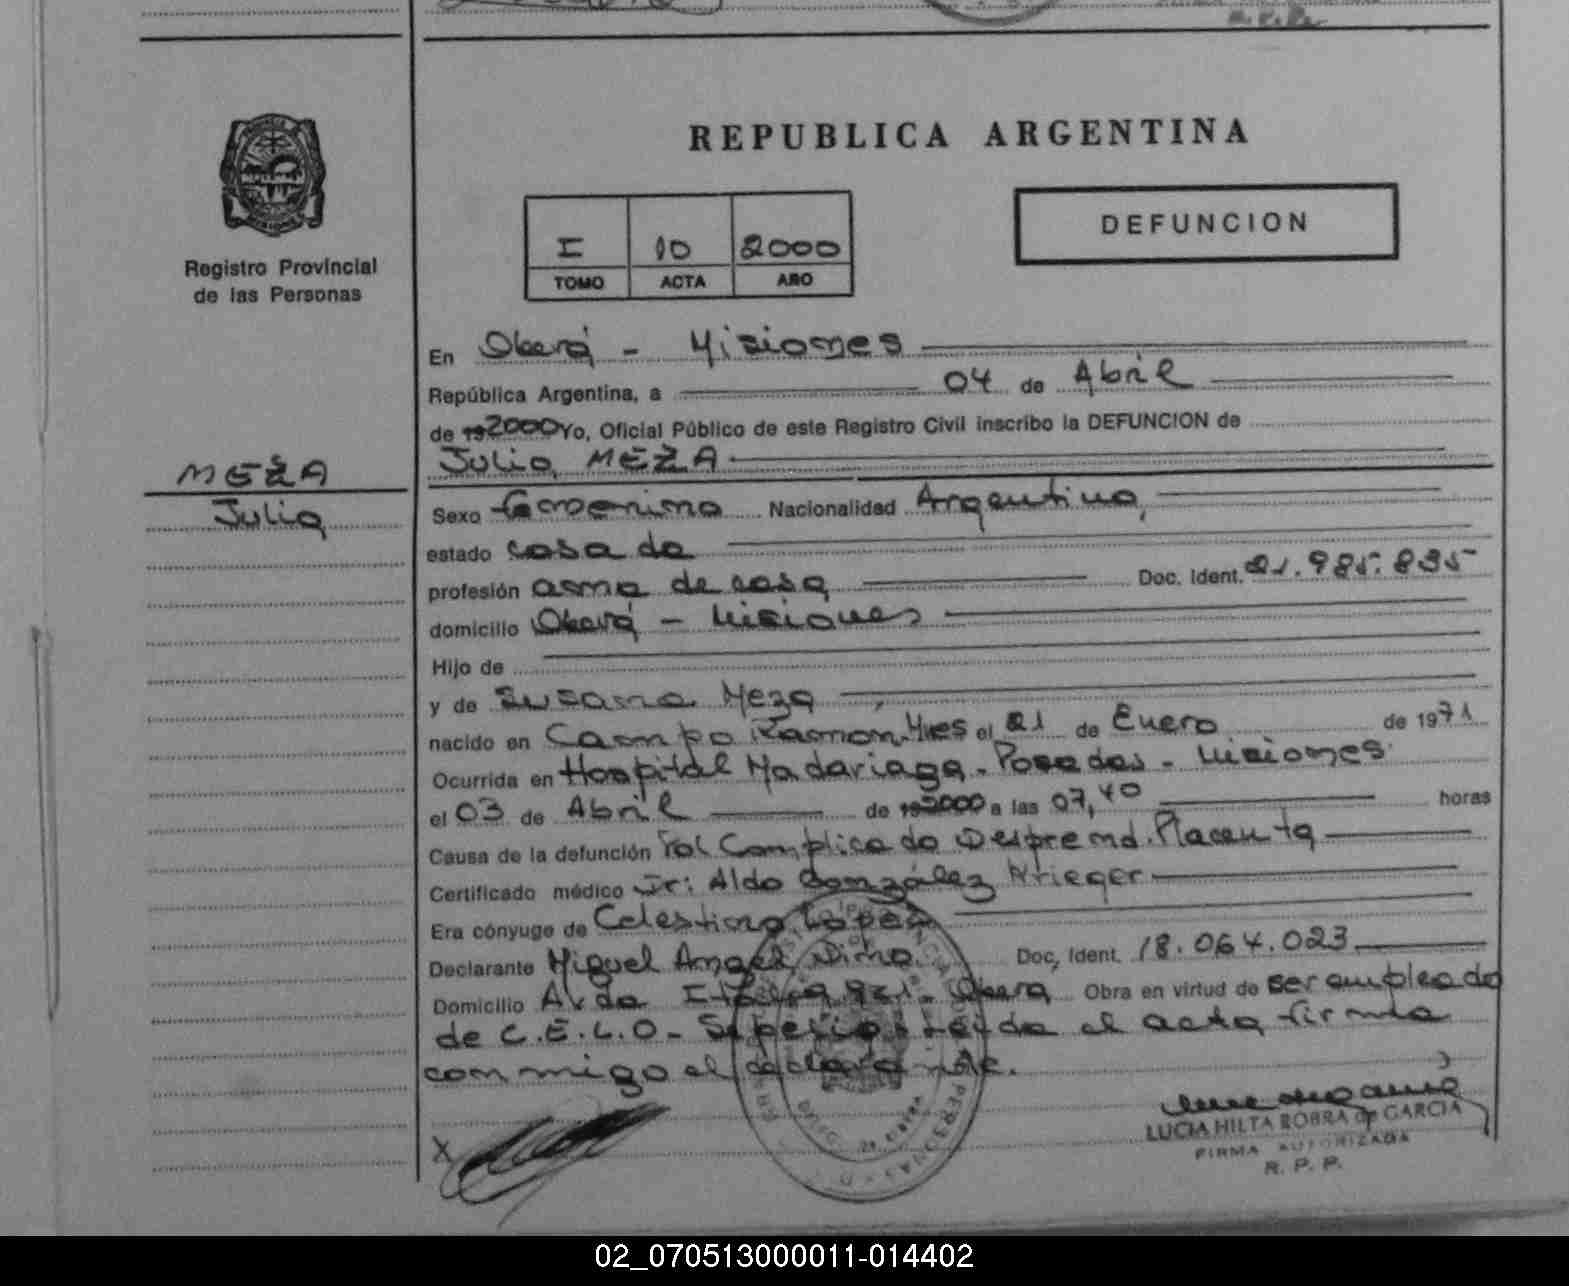 REPUBLICA ARGENTINA
DEFUNCION
I 10 2000
TOMO ACTA AÑO
Registro Provincial
de las Personas
En Oberá - Misiones
República Argentina, a 04 de Abril
de 192000 Yo, Oficial Público de este Registro Civil inscribo la DEFUNCION de
MEZA
Julia MEZA
Julia
Sexo femenino Nacionalidad Argentina,
estado casada
profesión ama de casa Doc. Ident. 21.985.835
domicilio Oberá - Misiones
Hijo de
y de Susana Meza,
nacido en Campo Ramón, Mnes el 21 de Enero de 1971
Ocurrida en Hospital Madariaga - Posadas - Misiones
el 03 de Abril de 192000 a las 07,40 horas
Causa de la defunción Complicado Desprend. Placenta
Certificado médico Dr: Aldo González Krieger
Era cónyuge de Celestino López
Declarante Miguel Angel Doc. Ident. 18.064.023
Domicilio Avda Oberá Obra en virtud de ser empleado
de C.E.L.O - leida el acta firma
conmigo el declarante.
X
LUCIA HILTA ROBRA de GARCIA
FIRMA AUTORIZADA
R. P. P.
02_070513000011-014402